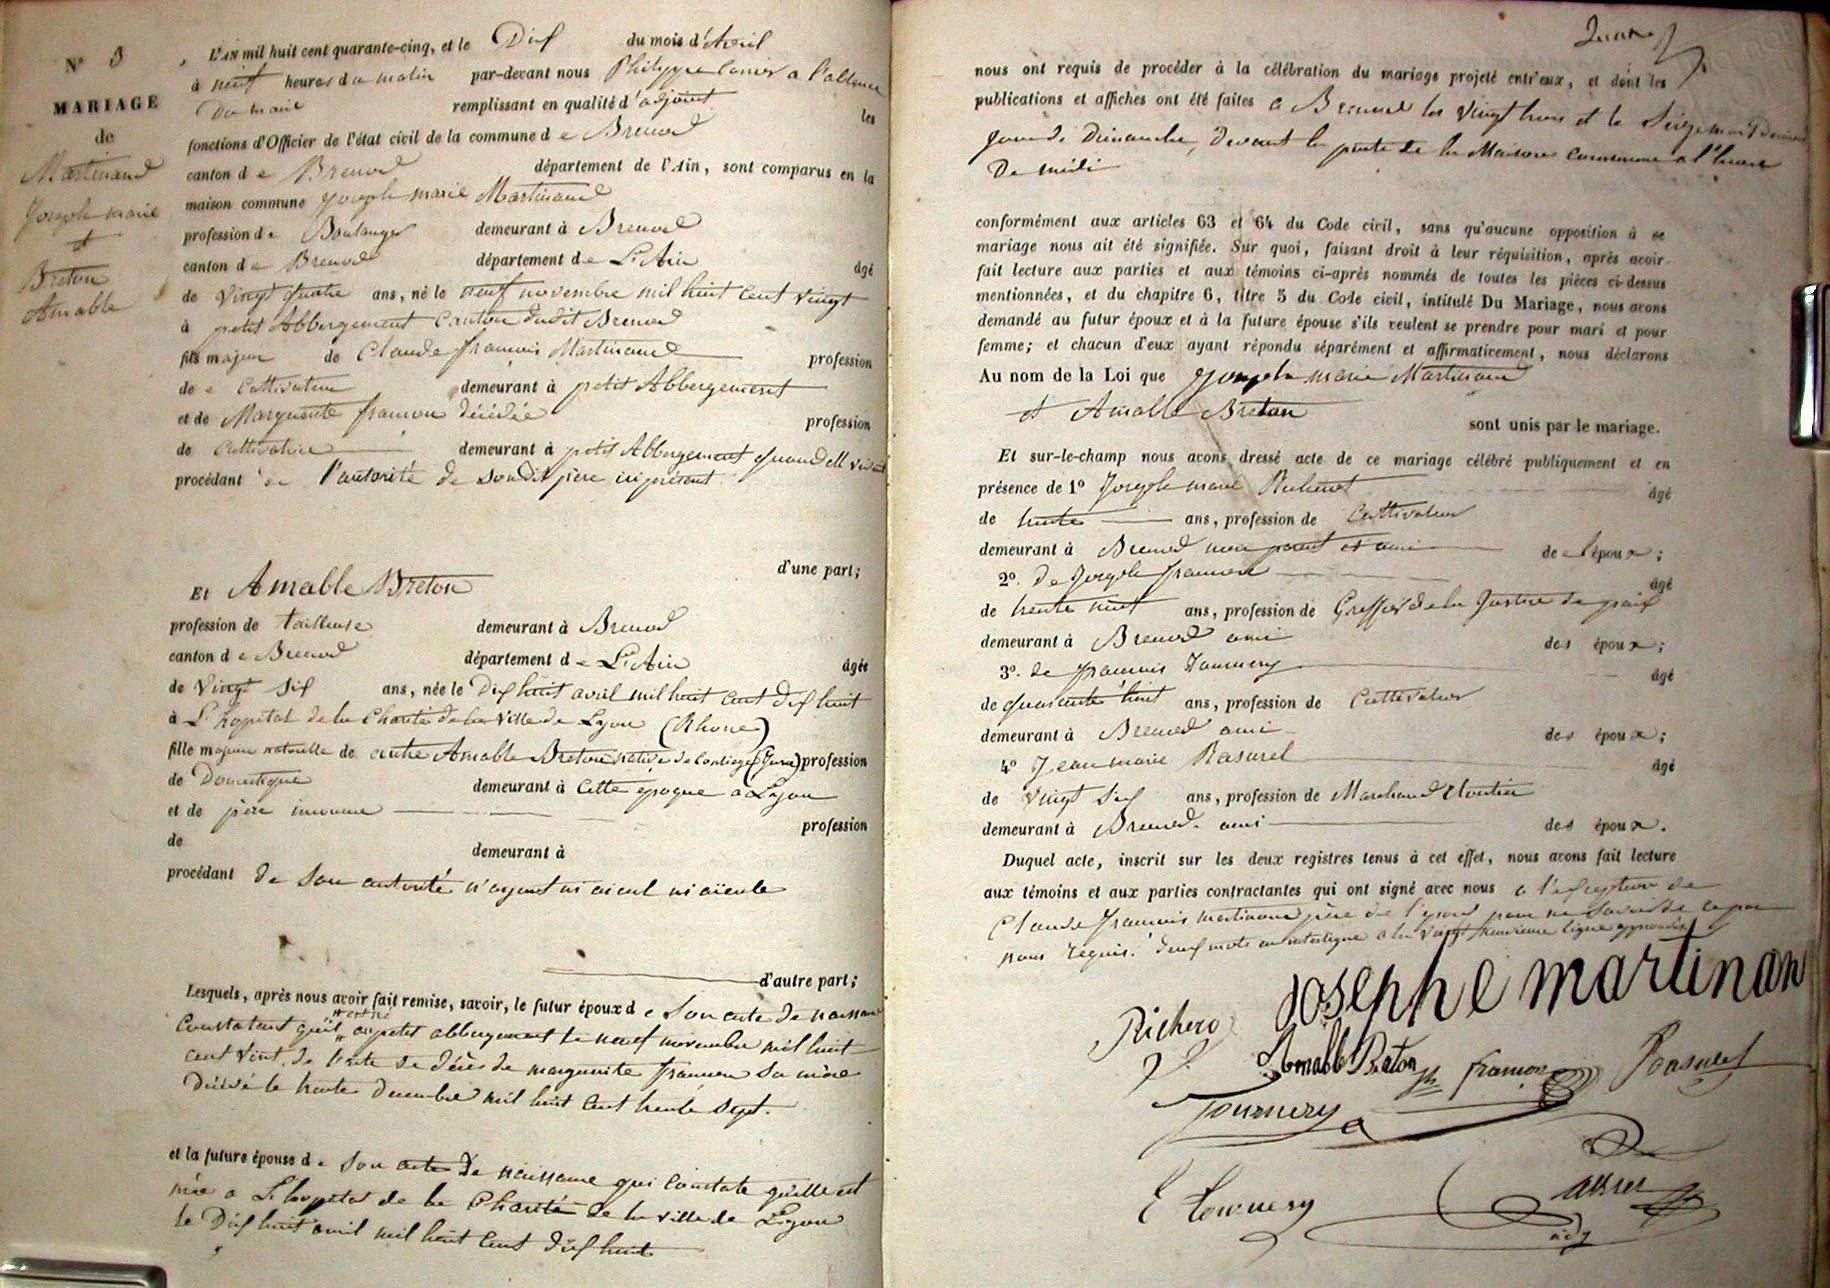 N° 3
MARIAGE
de
Martinand
Joseph marie
et
Breton
Amable
L'AN mil huit cent quarante-cinq, et le Dix du mois d'Avril
à neuf heures du matin par-devant nous Philippe a l'absence
Du maire remplissant en qualité d'adjoint les
fonctions d'Officier de l'état civil de la commune de Brenod
canton de Brenod département de l'Ain, sont comparus en la
maison commune Joseph marie Martinand
profession de Boulanger demeurant à Brenod
canton de Brenod département de L'Ain âgé
de vingt quatre ans, né le neuf novembre mil huit cent vingt
à petit Abbergement Canton dudit Brenod
fils majeur de Claude françois Martinand profession
de Cultivateur demeurant à petit Abbergement
et de Marguerite françon décédée profession
de Cultivatrice demeurant à petit Abbergement quand ell vivait
procédant de l'autorité de son dit père ici présent
d'une part;
Et Amable Breton
profession de tailleuse demeurant à Brenod
canton de Brenod département de L'Ain âgée
de vingt six ans, née le Dix huit avril mil huit cent dix huit
à L'hopital de la Charité de la ville de Lyon (Rhone)
fille majeure naturelle de autre Amable Breton native de Conliege (Jura) profession
de Domestique demeurant à cette époque a Lyon
et de père inconnu profession
de demeurant à
procédant de son autorité n'ayant ni aieul ni aïeule
d'autre part;
Lesquels, après nous avoir fait remise, savoir, le futur époux de son acte de naissance
Constatant qu'il est né au petit abbergement le neuf novembre mil huit
cent vint. de l'acte de décès de marguerite françon sa mère
Décédé le trente decembre mil huit cent trente sept.
et la future épouse de son acte de naissance qui constate qu'elle est
née a L'hopital de la Charité de la ville de Lyon
le Dix huit avril mil huit cent dix huit
nous ont requis de procéder à la célébration du mariage projeté entr'eux, et dont les
publications et affiches ont été faites a Brenod les vingt trois et le
jour de dimanche, devant la porte de la Maison commune a l'heure
De midi
conformément aux articles 63 et 64 du Code civil, sans qu'aucune opposition à ce
mariage nous ait été signifiée. Sur quoi, faisant droit à leur réquisition, après avoir
fait lecture aux parties et aux témoins ci-après nommés de toutes les pièces ci-dessus
mentionnées, et du chapitre 6, titre 5 du Code civil, intitulé Du Mariage, nous avons
demandé au futur époux et à la future épouse s'ils veulent se prendre pour mari et pour
femme; et chacun d'eux ayant répondu séparément et affirmativement, nous déclarons
Au nom de la Loi que Joseph marie Martinand
et Amable Breton
sont unis par le mariage.
Et sur-le-champ nous avons dressé acte de ce mariage célébré publiquement et en
présence de 1° Joseph marie Richerot âgé
de trente ans, profession de Cultivateur
demeurant à Brenod non parent et ami de l'époux;
2°. de Joseph françon âgé
de trente neuf ans, profession de Greffier de la Justice de paix
demeurant à Brenod ami des époux;
3°. de françois Tournery âgé
de quarante huit ans, profession de Cultivateur
demeurant à Brenod ami des époux;
4° Jean marie Rasurel âgé
de vingt six ans, profession de Marchand Cloutier
demeurant à Brenod. ami des époux.
Duquel acte, inscrit sur les deux registres tenus à cet effet, nous avons fait lecture
aux témoins et aux parties contractantes qui ont signé avec nous a l'exception de
Claude françois martinand père de l'époux pour ne savoir de ce par
nous requis. deux mots en interligne a la vingt troisième ligne approuvés
Josephe martinan
Richero
Amable Breton
Jh françon
Rasurel
Tournery
E tournery
adj